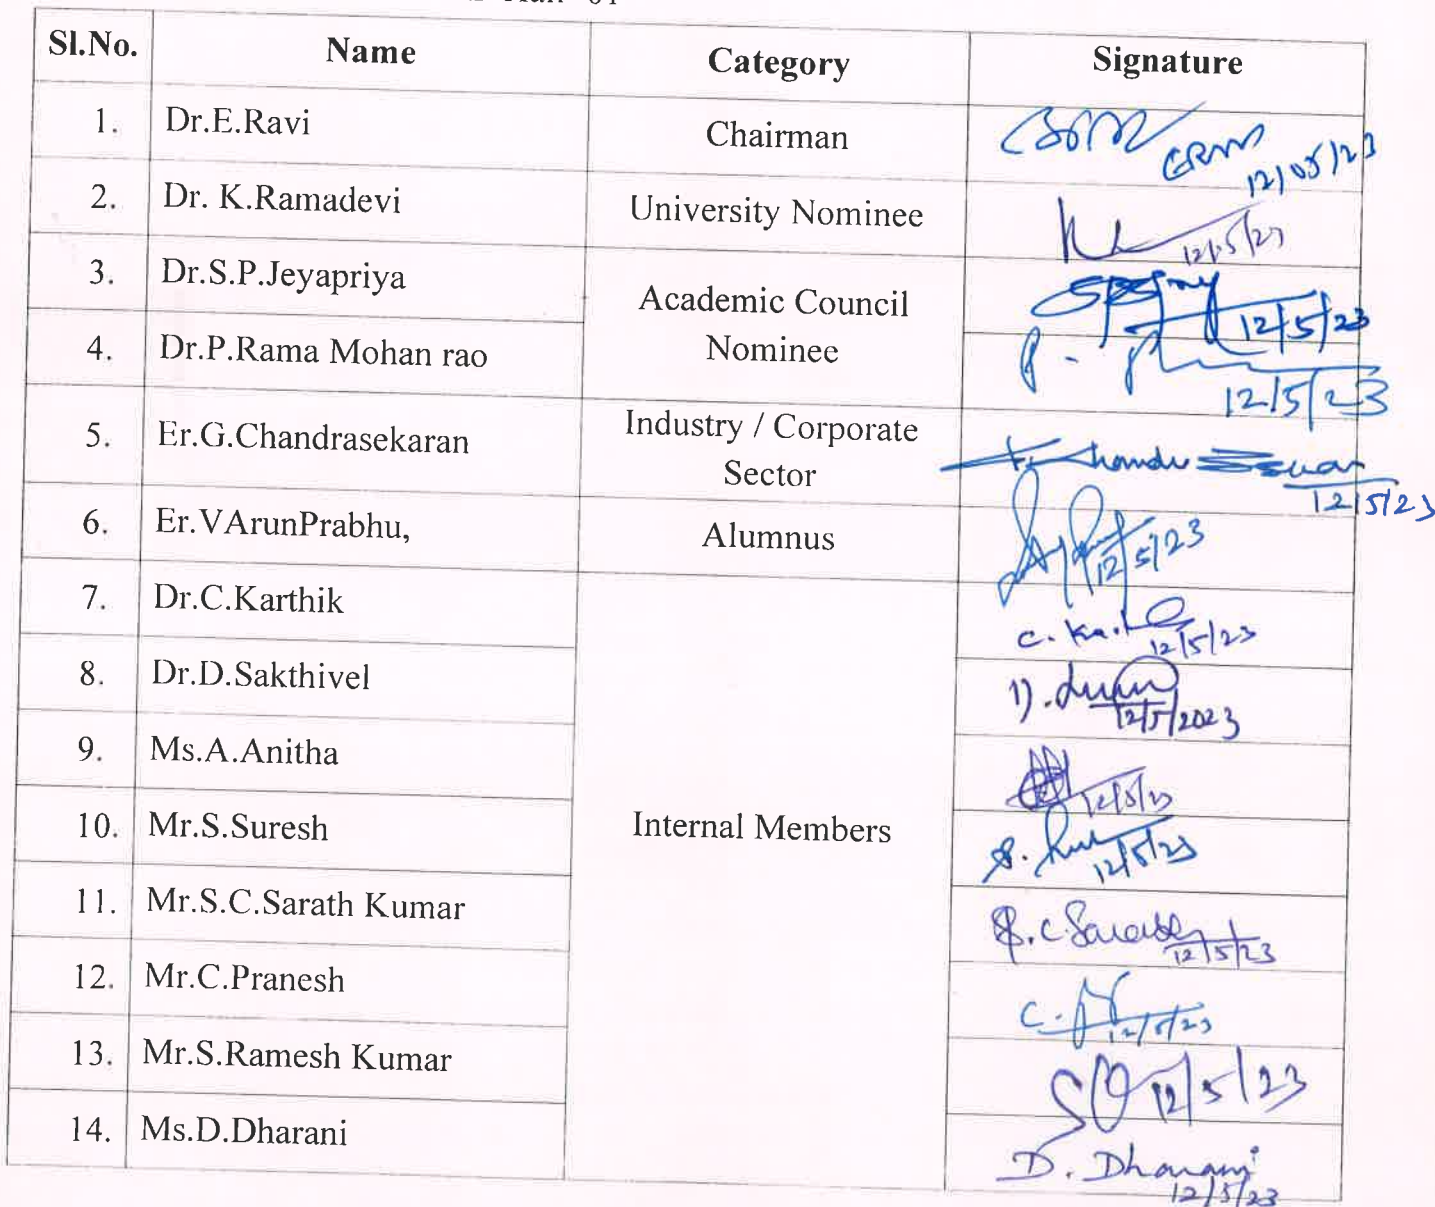 Sl.No. Name Category Signature
1. Dr.E.Ravi Chairman 12/05/23
2. Dr. K.Ramadevi University Nominee 12/5/23
3. Dr.S.P.Jeyapriya Academic Council Nominee 12/5/23
4. Dr.P.Rama Mohan rao 12/5/23
5. Er.G.Chandrasekaran Industry / Corporate Sector 12/5/23
6. Er.VArunPrabhu, Alumnus 12/5/23
7. Dr.C.Karthik Internal Members 12/5/23
8. Dr.D.Sakthivel 12/5/2023
9. Ms.A.Anitha 12/5/23
10. Mr.S.Suresh 12/5/23
11. Mr.S.C.Sarath Kumar 12/5/23
12. Mr.C.Pranesh 12/5/23
13. Mr.S.Ramesh Kumar 12/5/23
14. Ms.D.Dharani D. Dharani 12/5/23